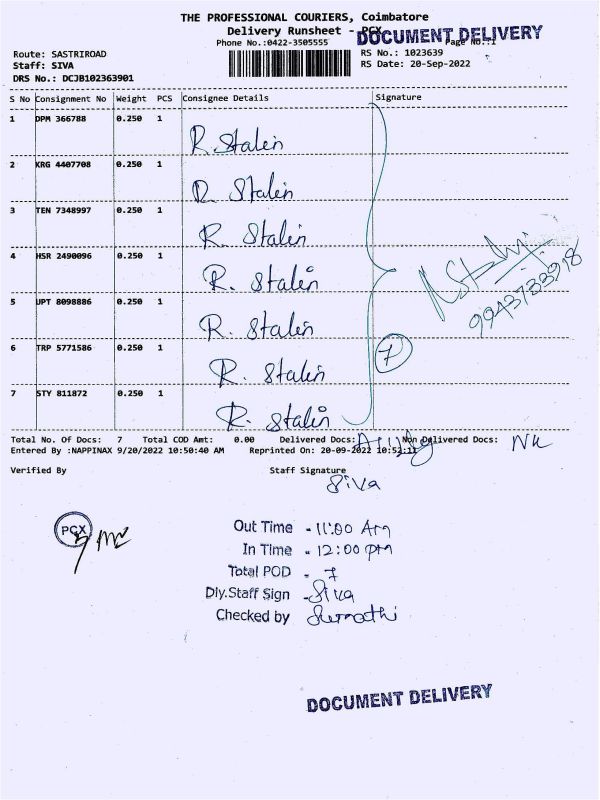 THE PROFESSIONAL COURIERS, Coimbatore
Delivery Runsheet - PCX
DOCUMENT DELIVERY
Phone No.:0422-3505555
Page No.:1
Route: SASTRIROAD
RS No.: 1023639
Staff: SIVA
RS Date: 20-Sep-2022
DRS No.: DCJB102363901
S No Consignment No Weight PCS Consignee Details Signature
1 DPM 366788 0.250 1 R. Stalin
2 KRG 4407708 0.250 1 R Stalin
3 TEN 7348997 0.250 1 R. Stalin
4 HSR 2490096 0.250 1 R. Stalin
9943733918
5 UPT 8098886 0.250 1 R. Stalin
6 TRP 5771586 0.250 1 R. Stalin
7
7 STY 811872 0.250 1 R. Stalin
Total No. Of Docs: 7 Total COD Amt: 0.00 Delivered Docs: Non Delivered Docs:
Entered By :NAPPINAX 9/20/2022 10:50:40 AM Reprinted On: 20-09-2022 10:52:11
Verified By Staff Signature
Siva
PCX
Out Time - 11:00 Am
In Time - 12:00 pm
Total POD - 7
Dly.Staff Sign - Siva
Checked by Sumathi
DOCUMENT DELIVERY